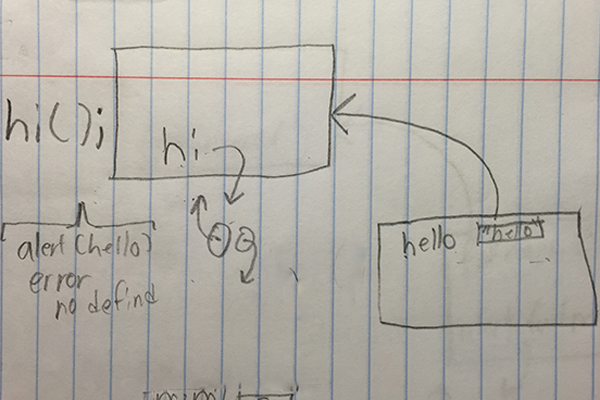 hi();
hi
alert(hello)
error
no defind
hello "hello"